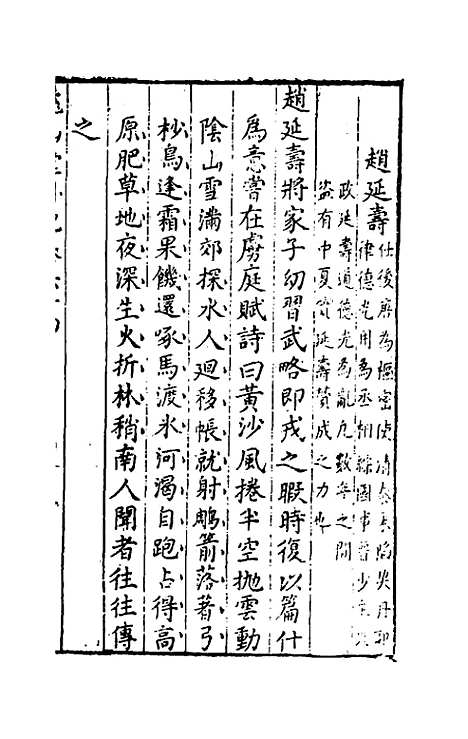 趙延壽
仕後唐為樞密使清泰末陷契丹耶
律德光用為丞相綜國事晉少主失
政延壽道德光為亂凡數年之間
盜有中夏實延壽贊成之力也
趙延壽將家子幼習武略即戎之暇時復以篇什
為意嘗在虜庭賦詩曰黃沙風捲半空拋雲動
陰山雪滿郊探水人迴移帳就射鵰箭落著弓
抄鳥逢霜果饑還啄馬渡氷河渴自跑占得高
原肥草地夜深生火折林稍南人聞者往往傳
之